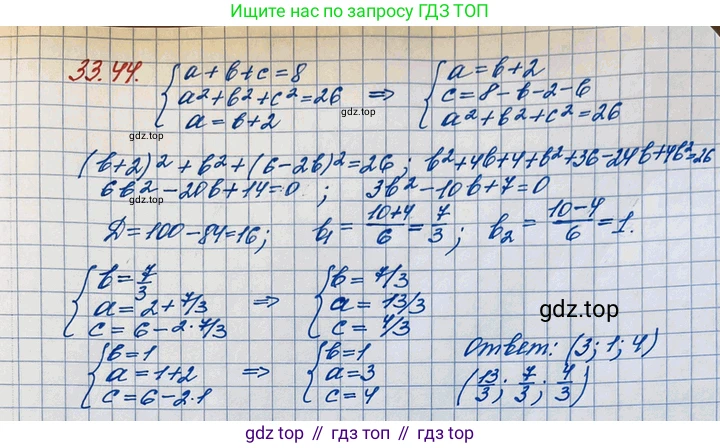 Ищите нас по запросу ГДЗ ТОП
33.44. { a + b + c = 8
a² + b² + c² = 26
a = b + 2
⇒ { a = b + 2
c = 8 - b - 2 - b
a² + b² + c² = 26
gdz.top
(b+2)² + b² + (6-2b)² = 26 ; b²+4b+4+b²+36-24b+4b²=26
6b² - 20b + 14 = 0 ; 3b² - 10b + 7 = 0
gdz.top
Д = 100 - 84 = 16; b₁ = (10+4)/6 = 7/3 ; b₂ = (10-4)/6 = 1.
{ b = 7/3
a = 2 + 7/3
c = 6 - 2·7/3
⇒ { b = 7/3
a = 13/3
c = 4/3
gdz.top
{ b = 1
a = 1 + 2
c = 6 - 2·1
⇒ { b = 1
a = 3
c = 4
Ответ: (3; 1; 4)
(13/3; 7/3; 4/3)
gdz.top
gdz.top // гдз топ // гдз.топ